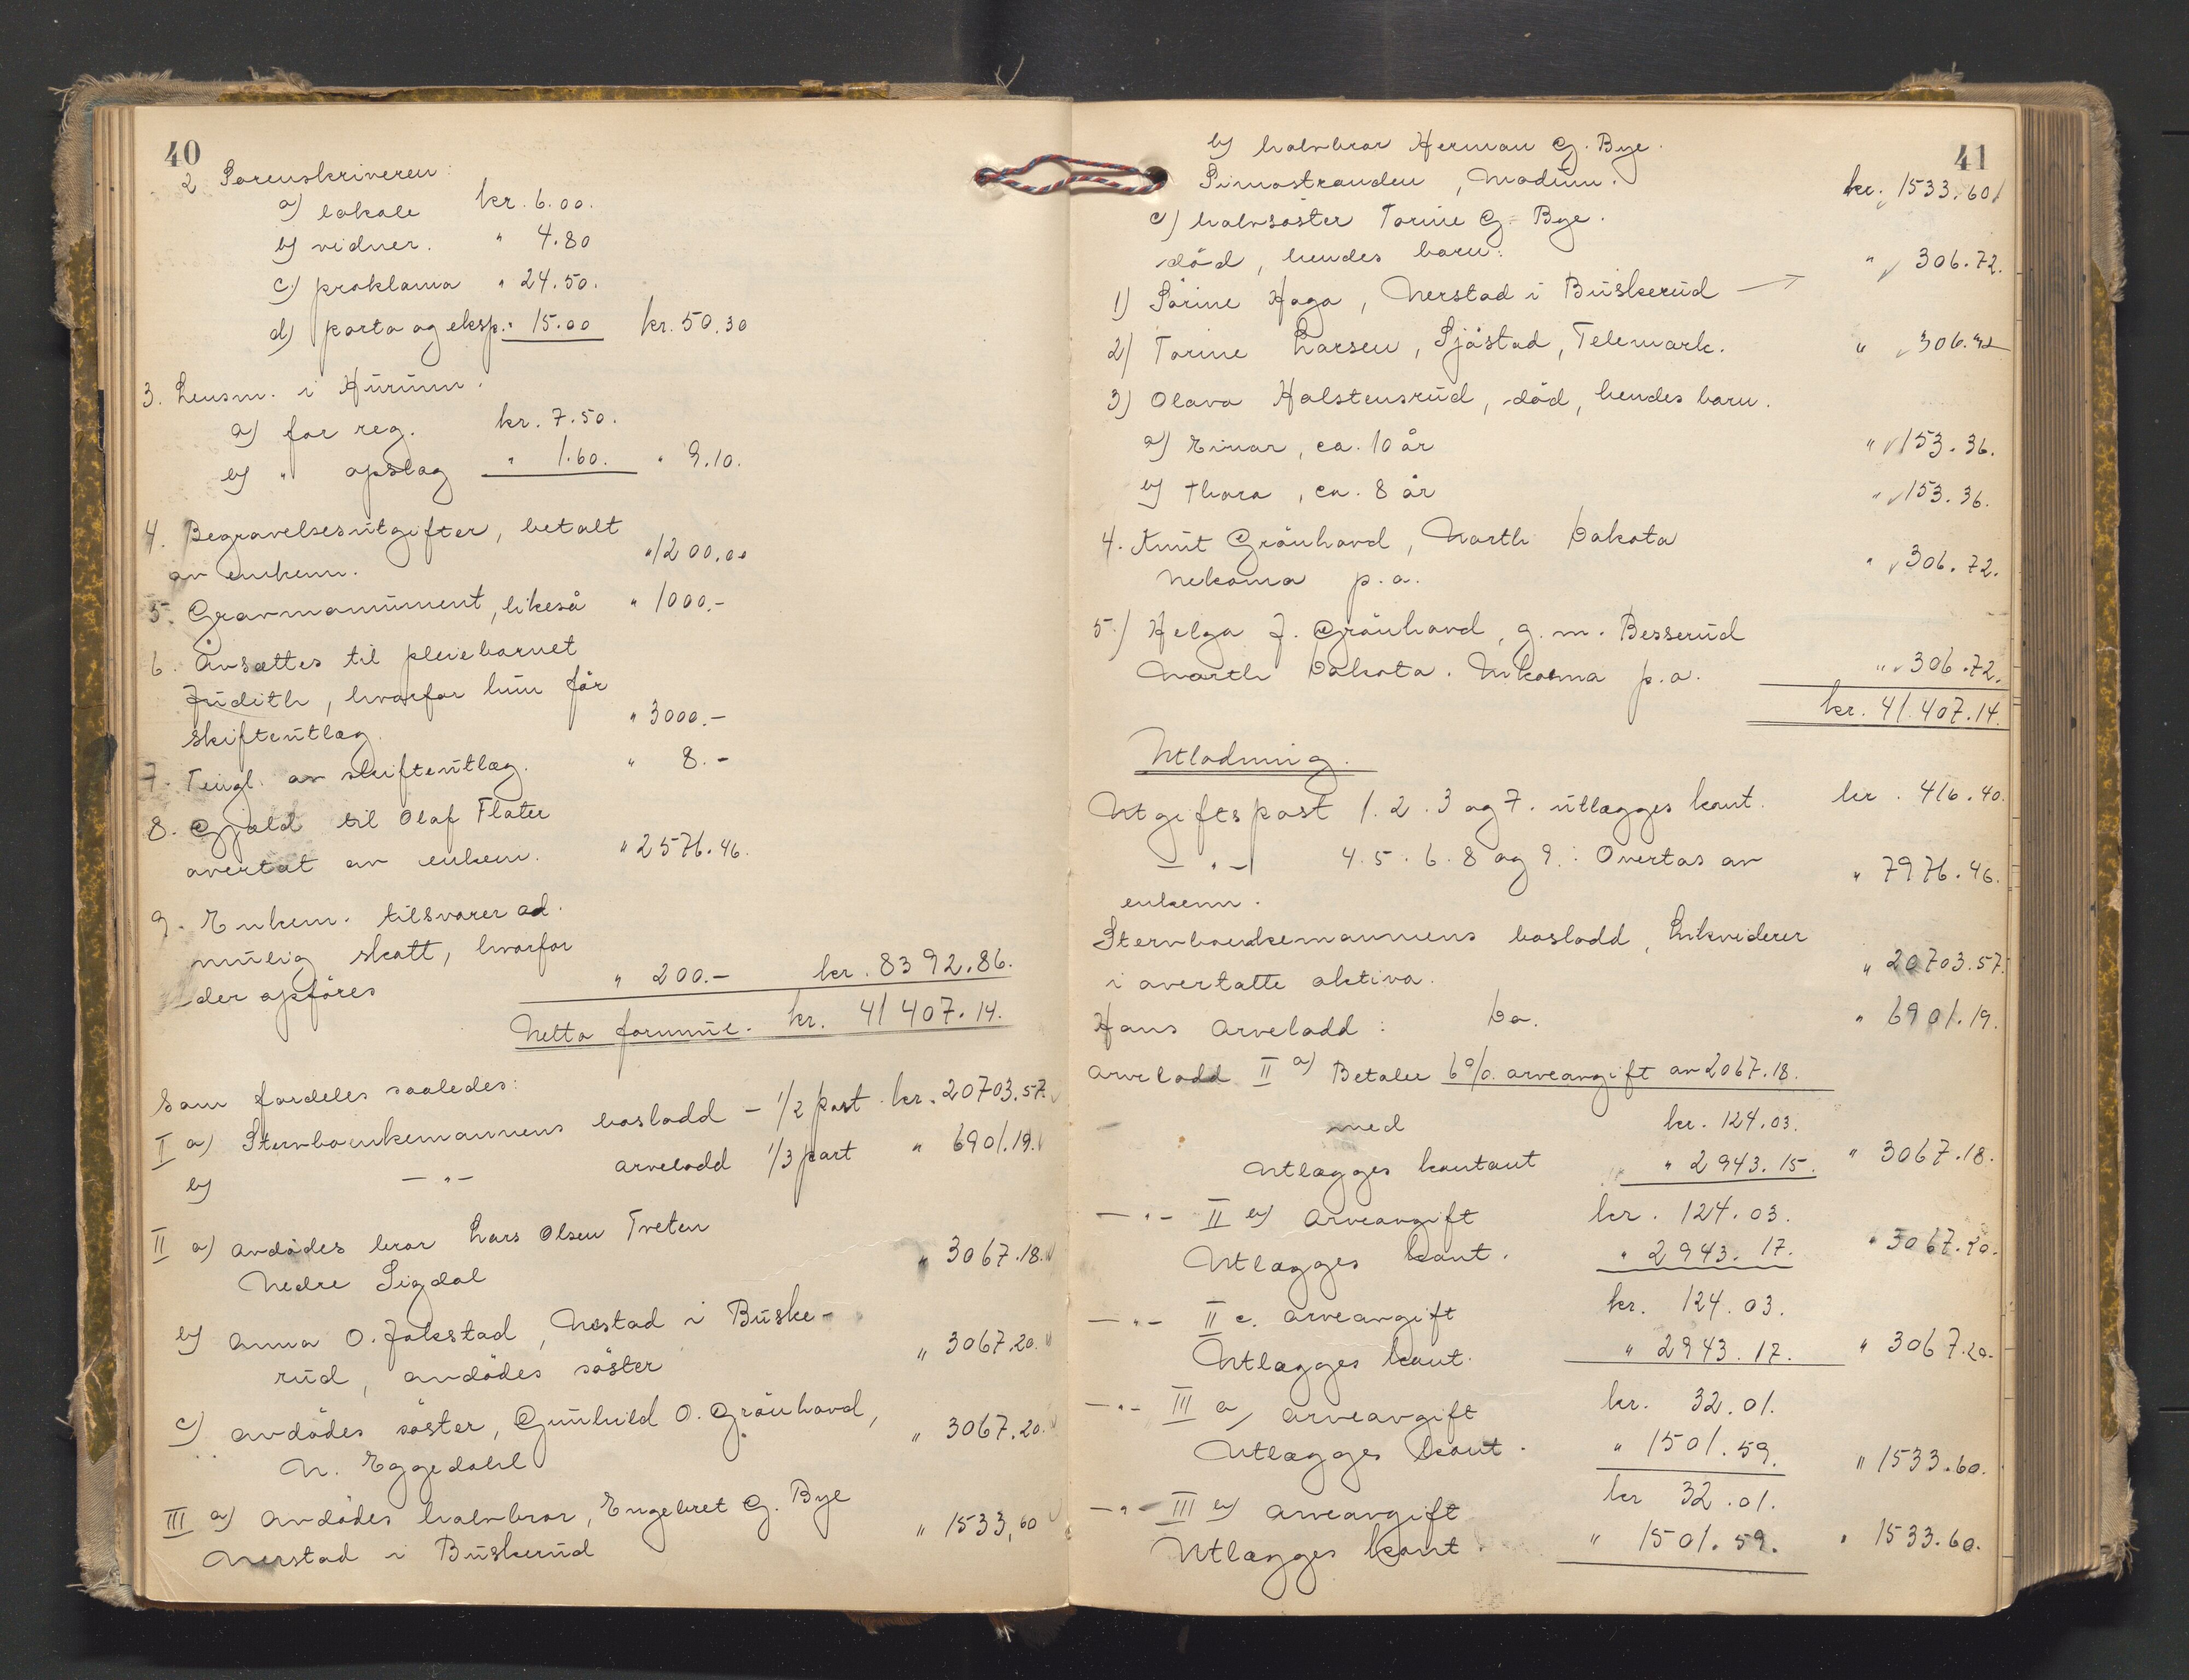 40
2 Sorenskriveren:
a) lokale kr. 6.00.
b) vidner. " 4.80
c) proklama " 24.50.
d) porto og eksp. " 15.00 kr. 50.30
3. Lensm. i Hurum.
a) for reg. kr. 7.50.
b) " opslag " 1.60. " 9.10.
4. Begravelsesutgifter, betalt " 1200.00
av enkem.
5. Gravmonument, likeså " 1000.-
6. Avsættes til pleiebarnet
Judith, hvorfor hun får
skifteutlæg. " 3000.-
7. Tingl. av skifteutlæg. " 8.-
8. Gjæld til Olaf Flaten
overtat av enkem. " 2576.46.
9. Enkem. tilsvarer ad.
mulig skatt, hvorfor
der opföres " 200.- kr. 8392.86.
Netto formue. kr. 41407.14.
Som fordeles saaledes:
I a) Stervboenkemannens boslodd - 1/2 part kr. 20703.57.
b) — " — arvelodd 1/3 part " 6901.19.
II a) avdödes bror Lars Olsen Tveten
Nedre Sigdal " 3067.18.
b) Anna O. Jokstad, Nestad i Buske-
rud, avdödes söster " 3067.20.
c) avdödes söster, Gunhild O. Grönhovd,
N. Eggedahl " 3067.20.
III a) Avdödes halvbror, Engebret G. Bye
Nerstad i Buskerud " 1533,60
41
b) halvbror Herman G. Bye.
Simostranden, Modum. kr. 1533.60
c) halvsöster Torine G. Bye.
död, hendes barn:
1) Sörine Haga, Nerstad i Buskerud — " 306.72.
2) Torine Larsen, Sjåstad, Telemark. " 306.72
3) Olava Halstensrud, död, hendes barn.
a) Einar, ca. 10 år " 153.36.
b) Thora, ca. 8 år " 153.36.
4. Knut Grönhovd, North Dakota
Nekoma p.a. " 306.72.
5.) Helga J. Grönhovd, g.m. Besserud
North Dakota. Nekoma p.a. " 306.72.
kr. 41.407.14.
Utlodning.
Utgiftspost 1. 2. 3 og 7. utlægges kont. kr. 416.40.
— " — 4. 5. 6. 8 og 9.: Overtas av
enkem. " 7976.46.
Stervboenkemannens boslodd, Likviderer
i overtatte aktiva. " 20703.57.
Hans arvelodd: Do. " 6901.19.
Arvelodd II a) Betaler 6% arveavgift av 2067.18.
med kr. 124.03.
Utlægges kontant " 2943.15. " 3067.18.
— " — II b) Arveavgift kr. 124.03.
Utlægges kont. " 2943.17. " 3067.20.
— " — II c. Arveavgift kr. 124.03.
Utlægges kont. " 2943.17. " 3067.20.
— " — III a) Arveavgift kr. 32.01.
Utlægges kont. " 1501.59. " 1533.60.
— " — III b) Arveavgift kr 32.01.
Utlægges kont. " 1501.59. " 1533.60.